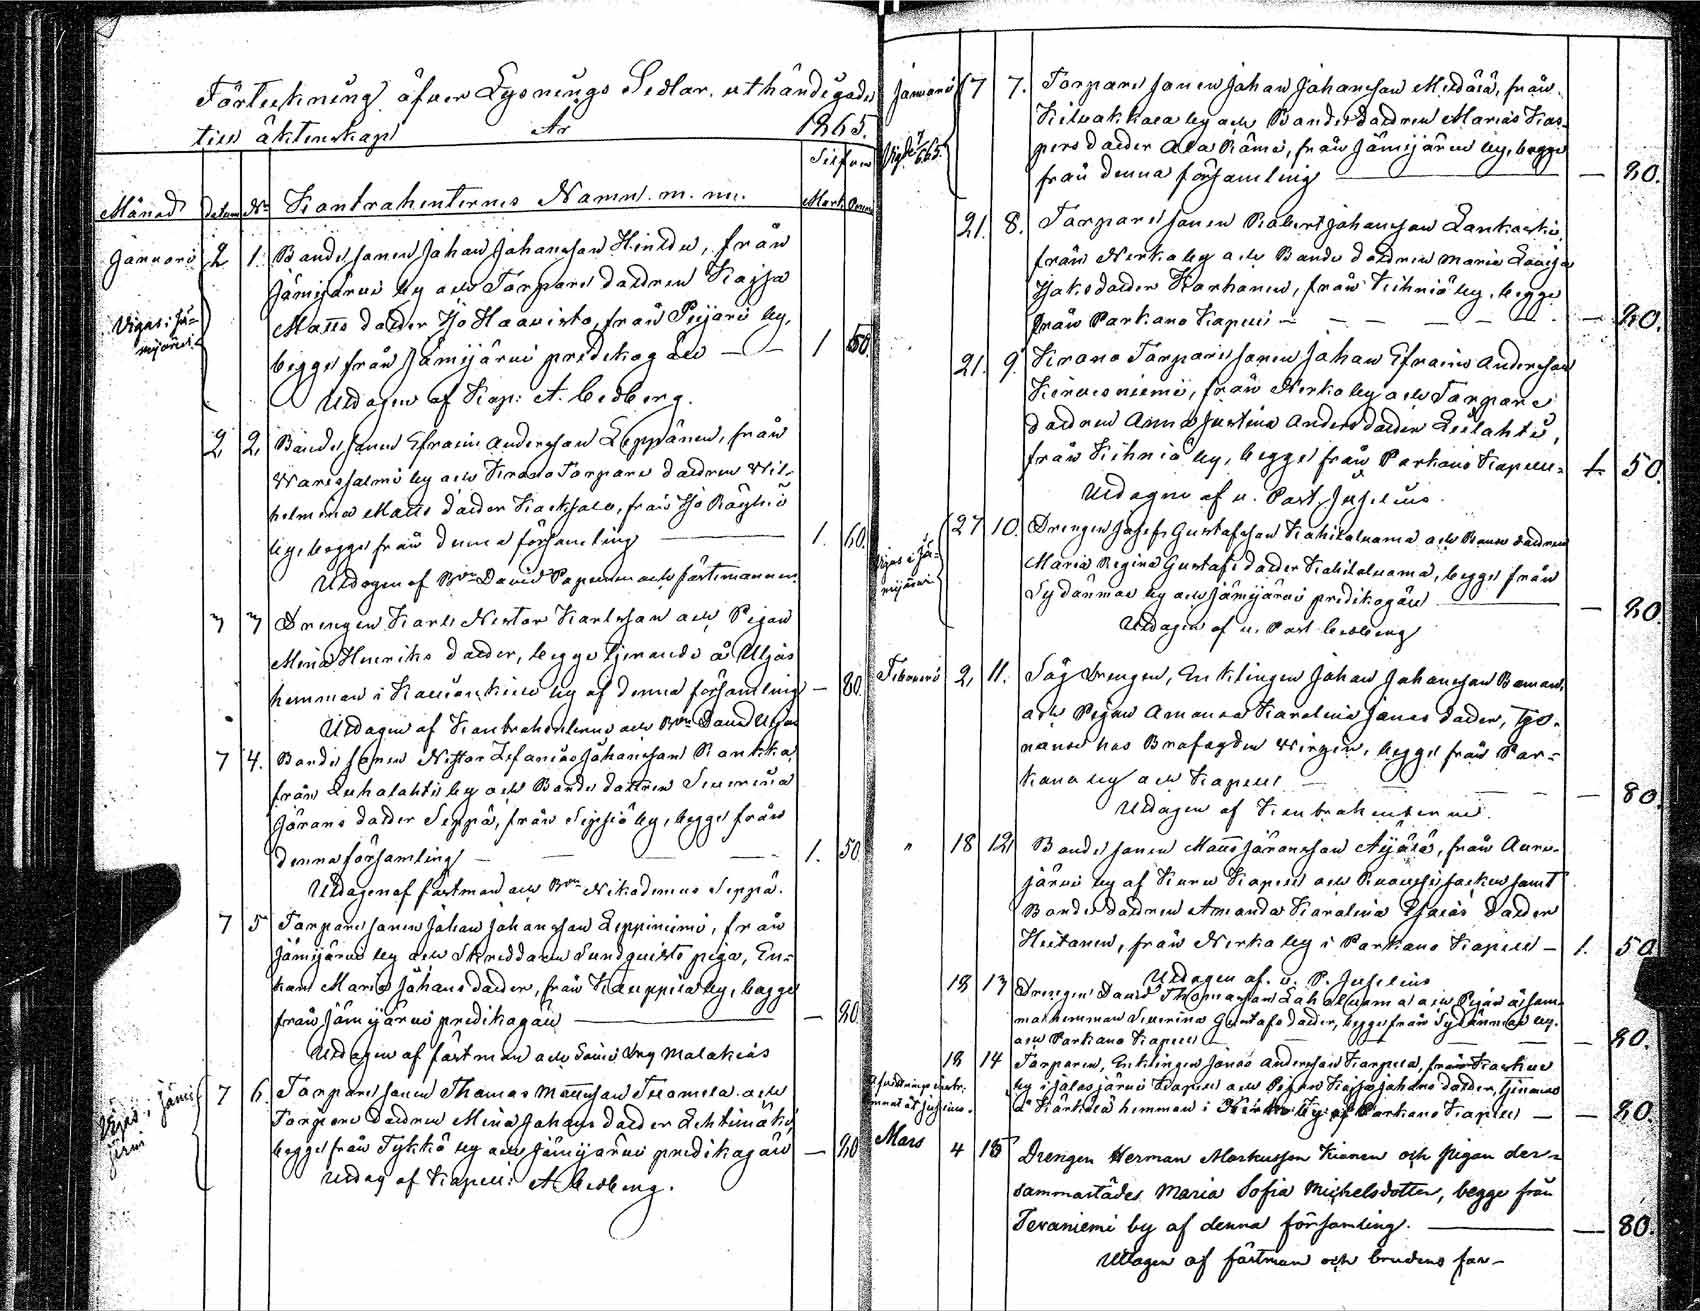 Förteckning öfver Lysnings Sedlar, uthändigade
till äktenskap År 1865.
Silfver
Månad datum No Kontrahenternes Namn. m. m. Mark Penni
Januari 2 1. Bonde sonen Johan Johansson Hinldu, från
Jämijärvi by och Torpare dottren Kajsa
Vigas i Jä-
mijärvi
Matts dotter Yö Haavisto, från Pejari by,
begge från Jämijärvi predikogäll — 1 50.
Utdagen af Kap: A. Cedberg.
2, 2, Bonde sonen Efraim Andersson Leppänen, från
Warissalmi by och Krono Torpare dottren Wil-
helmina Matts dotter från Yö Röyhiö
by, begge från denna församling — 1. 60.
Utdagen af Bon David och fästmannen.
3 3 Drengen Karl Nestor Karlsson och Pigan
Mina Henriks dotter, begge tjenande å Uljas
hemman i by af denna församling — 80.
Utdagen af Kontrahenterne och Bon David Uljas
7 4. Bonde sonen Nestor Zefanias Johansson
från Luhalahti by och Bonde dottren Severina
Görans dotter Seppä, från Sipsiö by, begge från
denna församling — 1. 50
Utdagen af fästman och Bon Nikodemus Seppä.
7 5 Torpare sonen Johan Johansson Leppiniemi, från
Jämijärvi by och Skreddaren Sundqvists piga, En-
kan Maria Johans dotter, från Kauppila by, begge
från Jämijärvi predikogäll — 80
Utdagen af fästman och Malakias
Vigas i Jämi
järvi
7 6. Torpare sonen Thomas Mattsson Tuomela och
Torpare dottren Mina Johans dotter Lehtimäki
begge från Tykkö by och Jämijärvi predikogäll — 80
Utdag af Kapell: A Cedberg.
Januari 17 7. Torpare sonen Johan Johansson från
Kilvakkala by och Bonde dottren Maria Kas-
Vigde
pers dotter Ala Rämi, från Jämijärvi by, begge
från denna församling — 80.
21. 8. Torpare sonen Robert Johansson Lankoski
från Nerko by och Bonde dottren Maria Lovisa
Isaks dotter Karhanen, från Kihniö by, begge
från Parkano Kapell — 80.
21. 9. Krono Torpare sonen Johan Efraim Andersson
från Nerko by och Torpare
dottren Anna Justina Anders dotter Leilahti,
från Kihniö by, begge från Parkano Kapell — 1. 50.
Utdagen af v. Past Juselius.
27 10. Drengen Josef Gustafsson Kahilaluoma och Bonde dottren
Vigas i Jä-
mijärvi
Maria Regina Gustafs dotter Kahilaluoma, begge från
Sydänmaa by och Jämijärvi predikogäll — 80
Utdagen af v. Past Cedberg
Februari 2, 11. Såg drengen, Enklingen Johan Johansson Boman,
och Pigan Amanda Karolina Jonas dotter, tje-
nande hos Brofogden Wirzen, begge från Par-
kano by och Kapell — 80.
Utdagen af Kontrahenterne.
" 18 12 Bonde sonen Matts Göransson Äijälä, från Aure-
järvi by af Kuru Kapell och Ruovesi socken samt
Bonde dottren Amanda Karolina Esaias dotter
Hietanen, från Nerko by i Parkano Kapell — 1. 50.
Utdagen af v. P. Juselius
18 13 Drengen David Thomasson Laholuoma och Pigan å samma
hemman Severina Gustafs dotter, begge från Sydänmaa by.
och Parkano Kapell — 80.
18 14 Torparen, Enklingen Jonas Andersson Karpela, från
by i Jalasjärvi Kapell och Pigan Kajsa Johans dotter, tjenande
å hemman i by af Parkano Kapell — 80.
Mars 4 15 Drengen Herman Markusson Kianen och pigan der-
sammastädes Maria Sofia Michelsdotter, begge från
Tevaniemi by af denna församling. — 80.
Uttagen af fästman och brudens far —